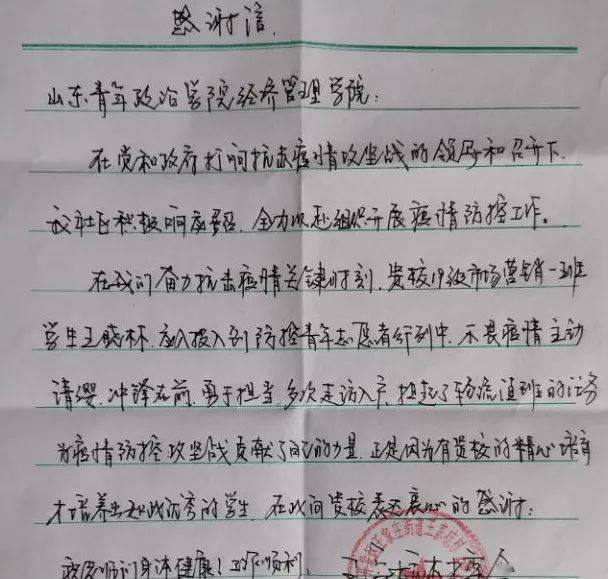 感谢信
山东青年政治学院经济管理学院:
在党和政府打响抗击疫情攻坚战的领导和召开下,
我社区积极响应号召,全力以赴组织开展疫情防控工作。
在我们奋力抗击疫情关键时刻,贵校19级市场营销一班
学生王晓林,加入投入到防控青年志愿者行列中,不畏疫情主动
请缨,冲锋在前,勇于担当,多次走访入户,担起了轮流值班的任务
为疫情防控攻坚战贡献了自己的力量,正是因为有贵校的精心培育
才培养出如此优秀的学生,在此向贵校表达衷心的感谢。
身体健康!工作顺利